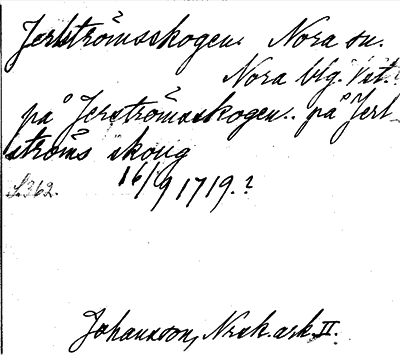 Jerlströmsskogen. Nora sn.
Nora blg. Vst.
på Jerströmsskogen.. på Jerl
ströms skoug
S.362. 16/9 1719.?
Johansson, Nrsk. ark. II.